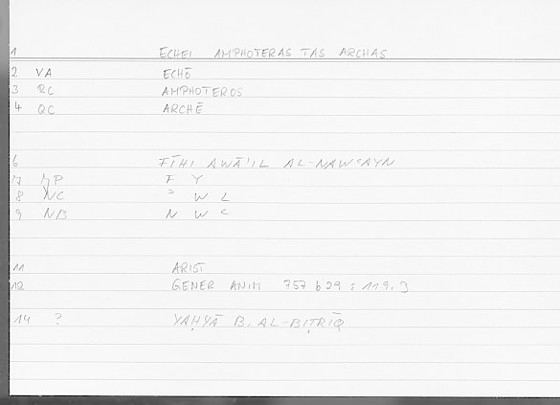 1 ECHEI AMPHOTERAS TAS ARCHAS
2 VA ECHĒ
3 RC AMPHOTEROS
4 QC ARCHĒ
6 FĪHI AWĀʾIL AL-NAWʿAYN
7 MP F Y
8 NC ʾ W L
9 NB N W ʿ
11 ARIST
12 GENER ANIM 757 b 29 : 119.3
14 ? YAḤYĀ B. AL-BIṬRĪQ